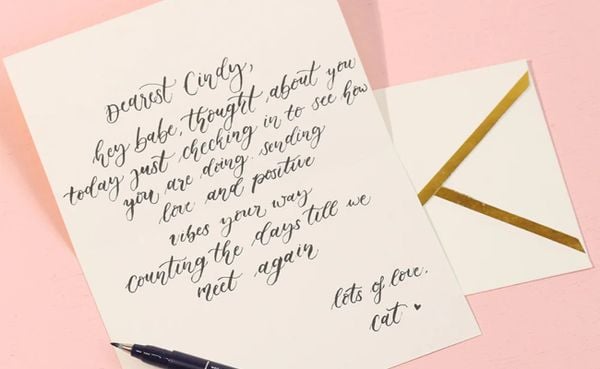 Dearest Cindy,
hey babe, thought about you
today just checking in to see how
you are doing. sending
love and positive
vibes your way
counting the days till we
meet again
lots of love.
cat ♥